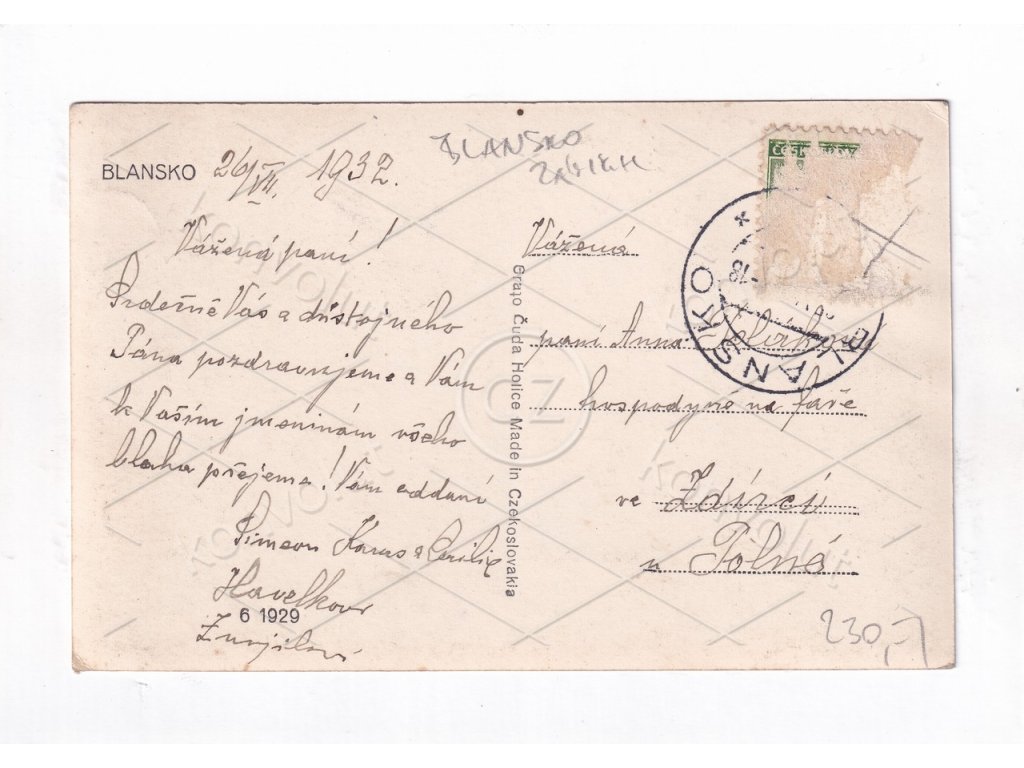 BLANSKO 26/VII. 1932.
BLANSKO
Vážená paní!
Srdečně Vás a důstojného
Pána pozdravujeme a Vám
k Vašim jmeninám všeho
blaha přejeme! Vám oddaní
Simeon Karus a Cecilie
Havelkovi
6 1929
Grafo Čuda Holice Made in Czekoslovakia
Vážená
paní Anna
hospodyně na faře
ve Zdírci
u Polné
BLANSKO
230,-